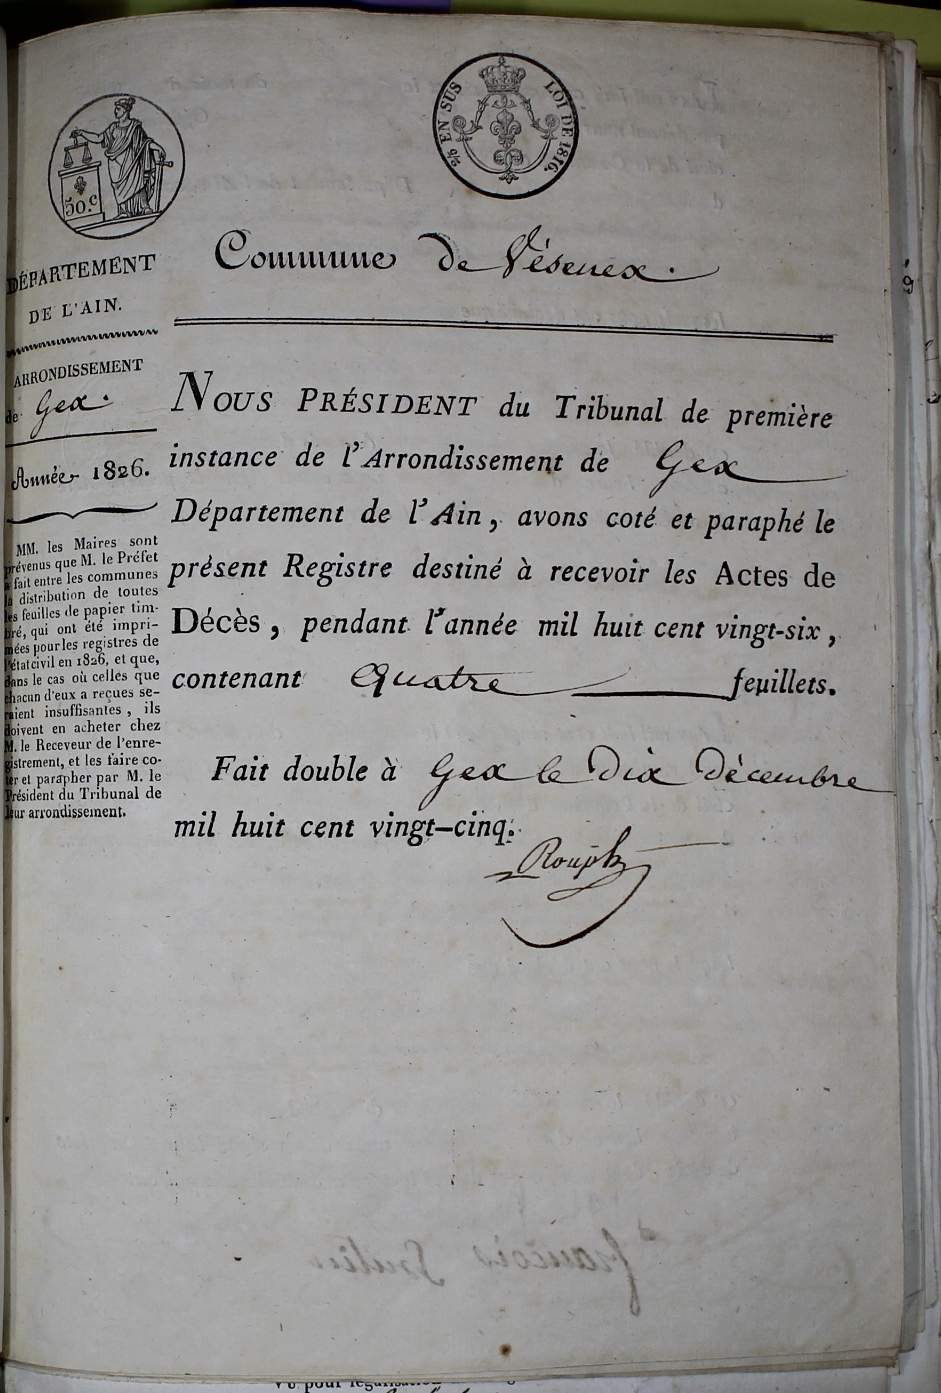 50.c
2/5 EN SUS LOI DE 1816.
Commune de Vésenex.
DÉPARTEMENT
DE L'AIN.
ARRONDISSEMENT
de Gex.
Année 1826.
MM. les Maires sont
prévenus que M. le Préfet
a fait entre les communes
la distribution de toutes
les feuilles de papier tim-
bré, qui ont été impri-
mées pour les registres de
l'état civil en 1826, et que,
dans le cas où celles que
chacun d'eux a reçues se-
raient insuffisantes, ils
doivent en acheter chez
M. le Receveur de l'enre-
gistrement, et les faire co-
ter et parapher par M. le
Président du Tribunal de
leur arrondissement.
NOUS PRÉSIDENT du Tribunal de première
instance de l'Arrondissement de Gex
Département de l'Ain, avons coté et paraphé le
présent Registre destiné à recevoir les Actes de
Décès, pendant l'année mil huit cent vingt-six,
contenant Quatre feuillets.
Fait double à Gex le dix décembre
mil huit cent vingt-cinq.
Vu pour